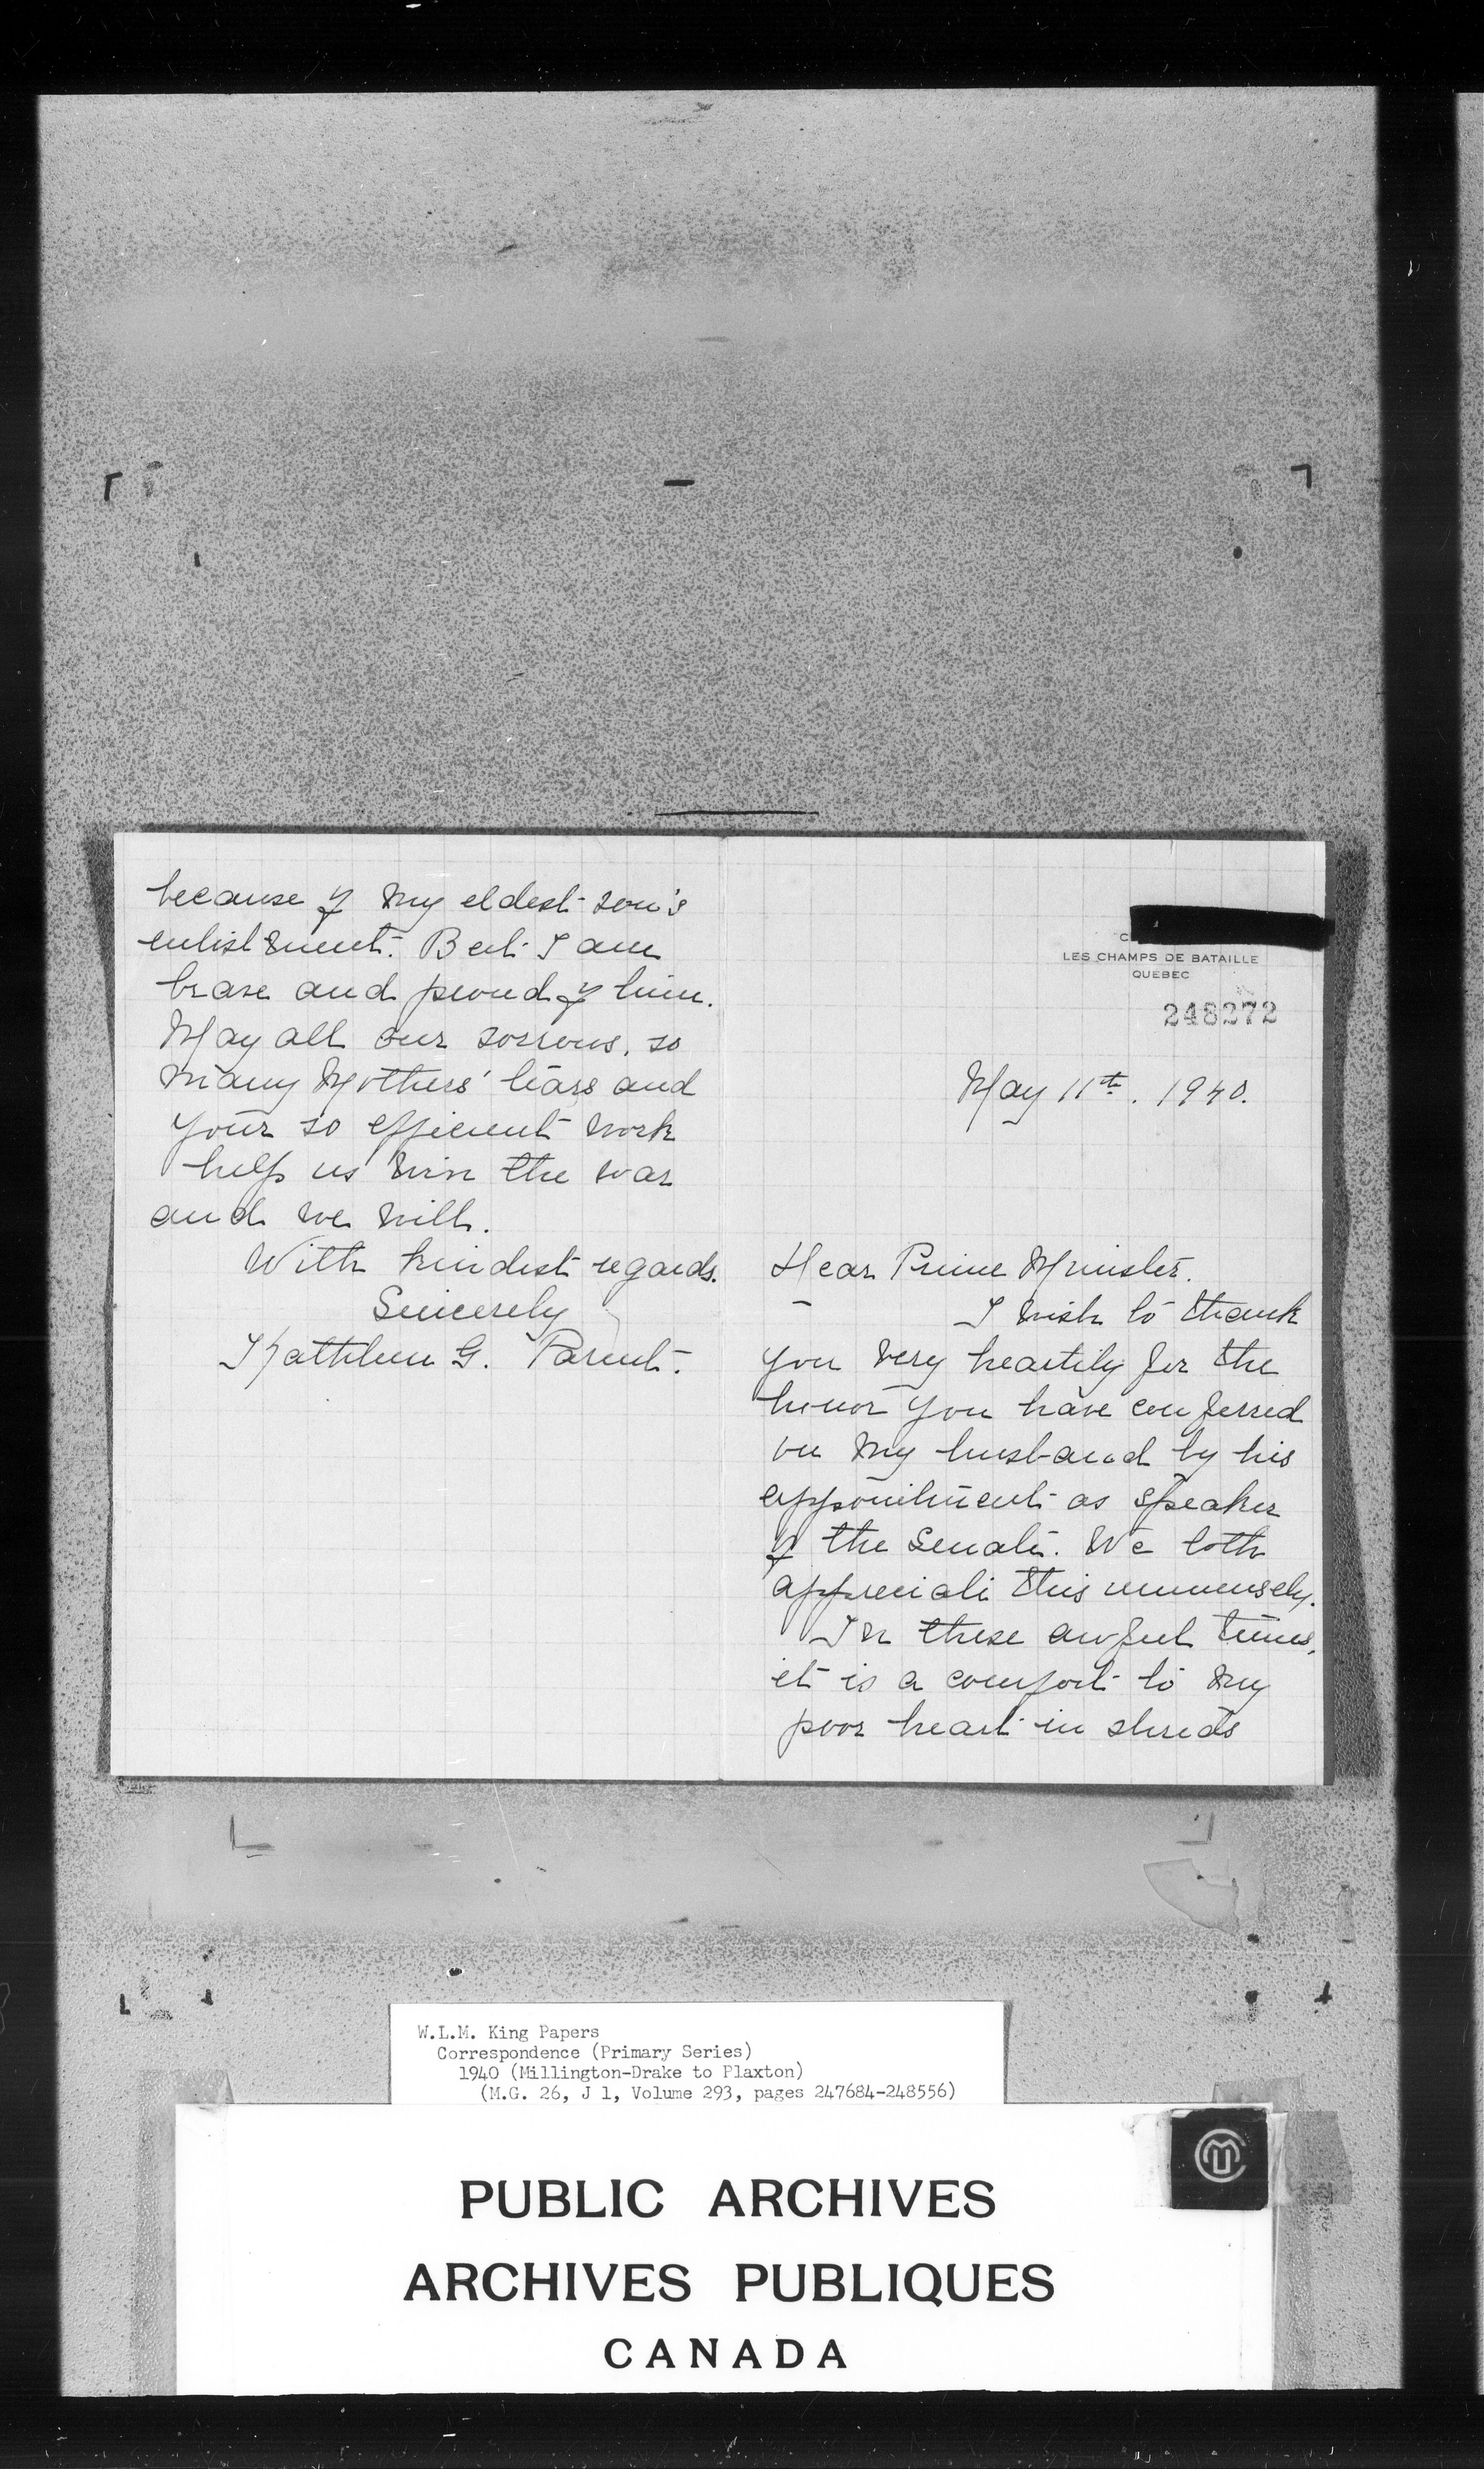 LES CHAMPS DE BATAILLE
QUEBEC
248272
May 11th. 1940.
Dear Prime Minister.
I wish to thank
you very heartily for the
honor you have conferred
on my husband by his
appointment as speaker
of the Senate. We both
appreciate this immensely.
In these awful times,
it is a comfort to my
poor heart in shreds
because of my eldest son's
enlistment. But I am
brave and proud of him.
May all our sorrows, so
many Mothers' tears and
your so efficient work
help us win the war
and we will.
With kindest regards.
Sincerely
Kathleen G. Parent.
W.L.M. King Papers
Correspondence (Primary Series)
1940 (Millington-Drake to Plaxton)
(M.G. 26, J 1, Volume 293, pages 247684-248556)
PUBLIC ARCHIVES
ARCHIVES PUBLIQUES
CANADA